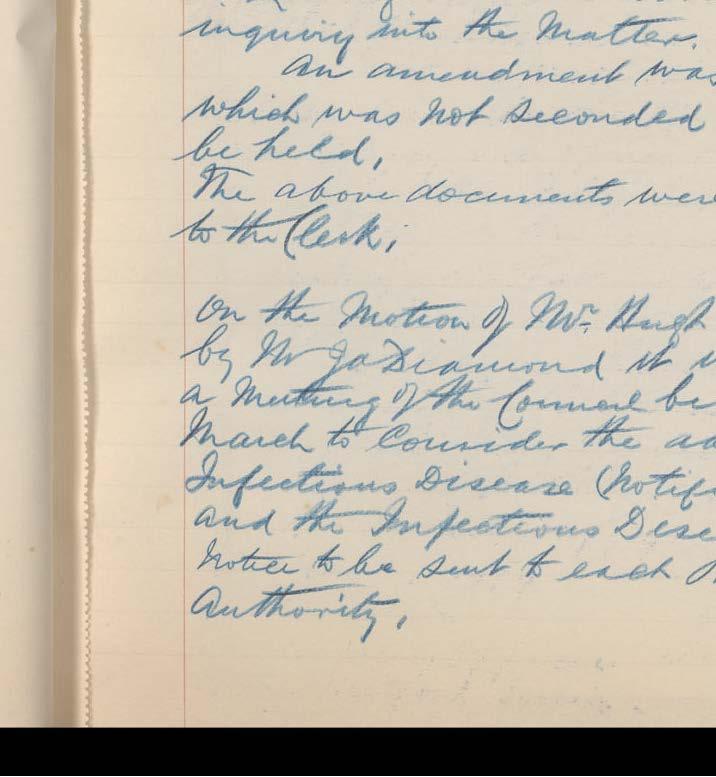 inquiry into the Matter.
An amendment was
which was not seconded
be held,
The above documents were
to the Clerk,
On the Motion of Mr. Hugh
by Mr Jas Diamond it
a Meeting of the Council be
March to Consider the
Infectious Disease (Notif
and the Infectious Dise
Notice to be sent to each
Authority,